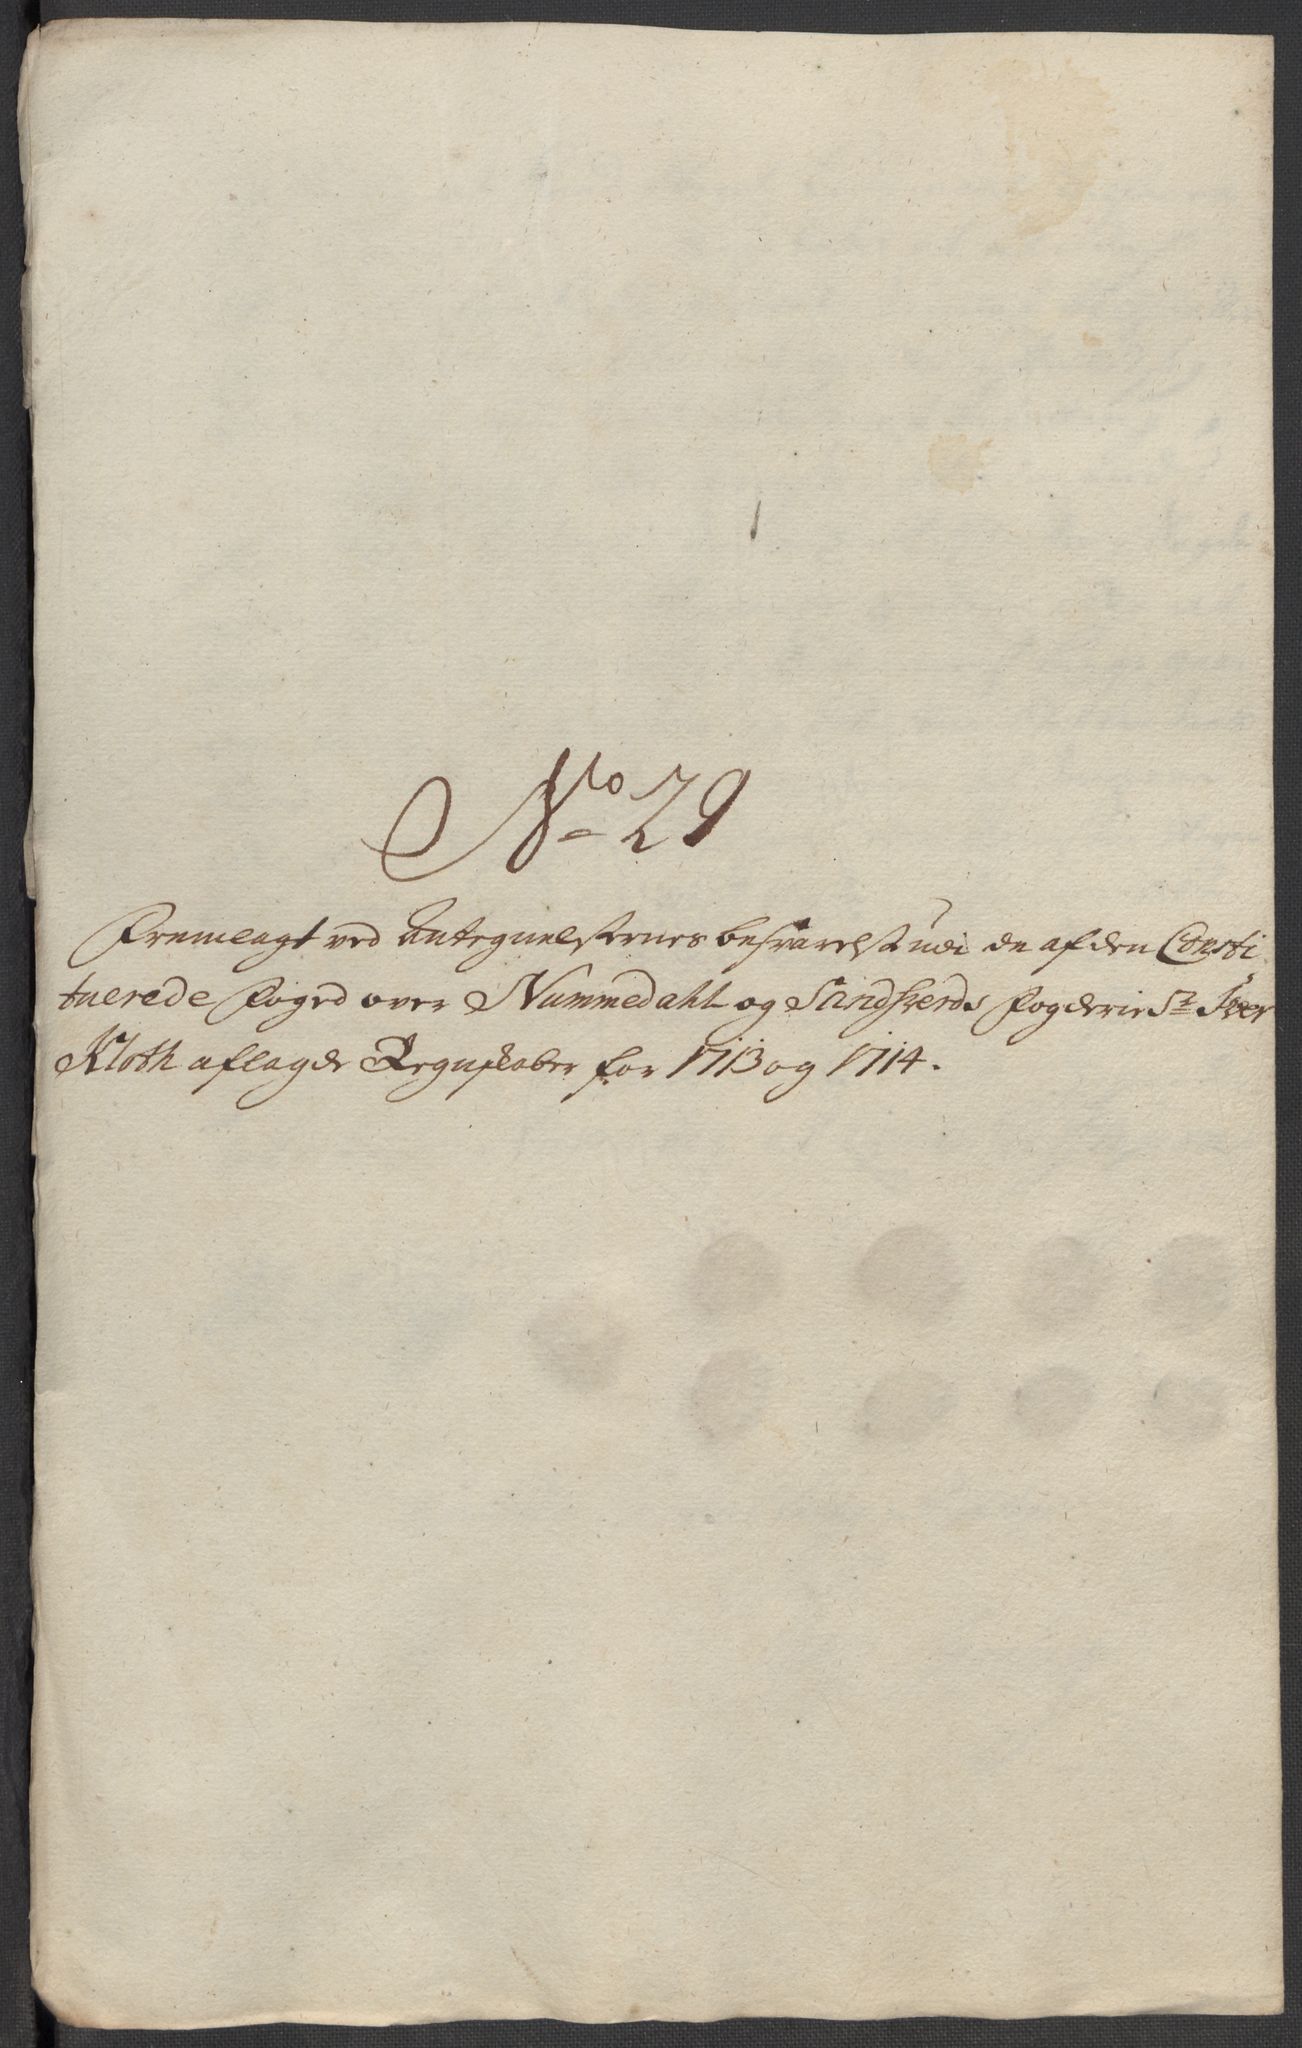 No 29
Fremlagt ved Antegnelsernes besvarelse udi de af den Consti
tuerede Foged over Nummedahl og Sandsverds Fogderie Sr Iver
Kloth aflagde Regnskaber for 1713 og 1714.